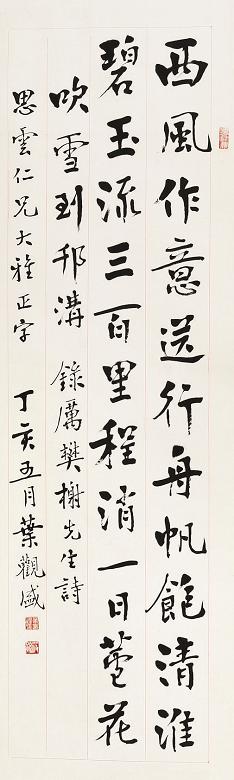 西風作意送行舟帆飽清淮
碧玉流三百里程消一日蘆花
吹雪到邗溝 錄厲樊榭先生詩
思雲仁兄大雅正字 丁亥五月葉觀盛